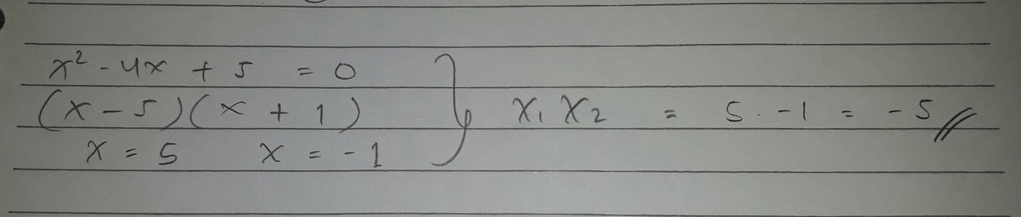 x² - 4x + 5 = 0
(x - 5)(x + 1)
x = 5 x = -1
x₁ x₂ = 5 . -1 = -5